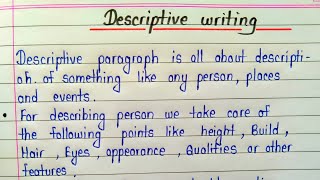 Descriptive writing
Descriptive paragraph is all about descripti-
oh. of something like any person, places
and events.
• For describing person we take care of
the following points like height, Build,
Hair, Eyes, appearance, Qualities or other
features.